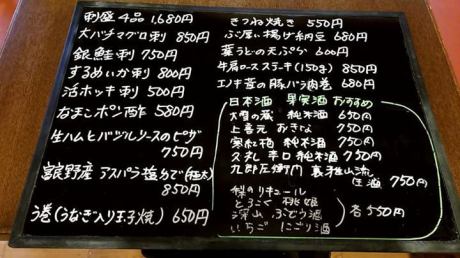 刺盛 4品 1,680円
大バチマグロ刺 850円
銀鮭刺 750円
するめいか刺 800円
活ホッキ刺 500円
なまこポン酢 580円
生ハムとバジルソースのピザ
750円
富良野産 アスパラ塩ゆで(極太)
850円
う巻(うなぎ入り玉子焼) 650円
きつね焼き 550円
ぶ厚い揚げ納豆 680円
葉うどの天ぷら 600円
牛肩ロースステーキ(150g) 850円
エノキ茸の豚バラ肉巻 680円
日本酒 果実酒 おすすめ
大雪の蔵 純米酒 650円
上喜元 おきな 750円
寒紅梅 純米酒 750円
久礼 辛口 純米酒 750円
九郎左衛門 裏雅山流
生酒 750円
梨のリキュール
とろこく 桃姫
深山 ぶどう酒
いちご にごり酒
各550円